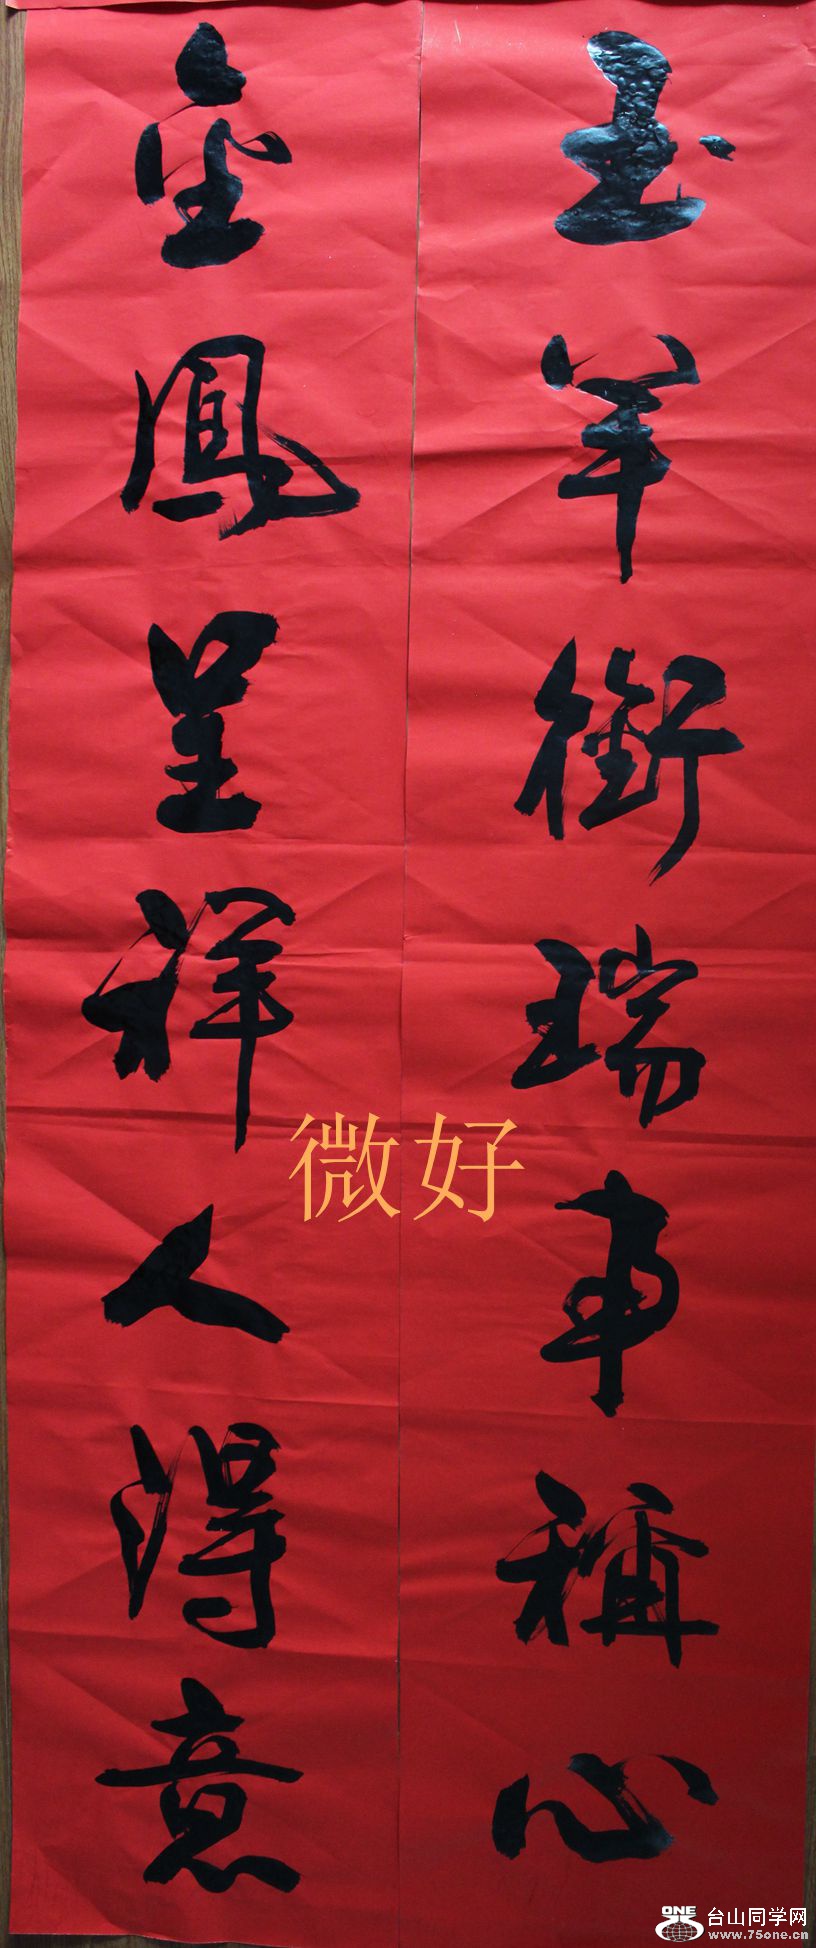 玉羊銜瑞事稱心
金鳳呈祥人得意
微好
ONE
台山同学网
www.75one.cn